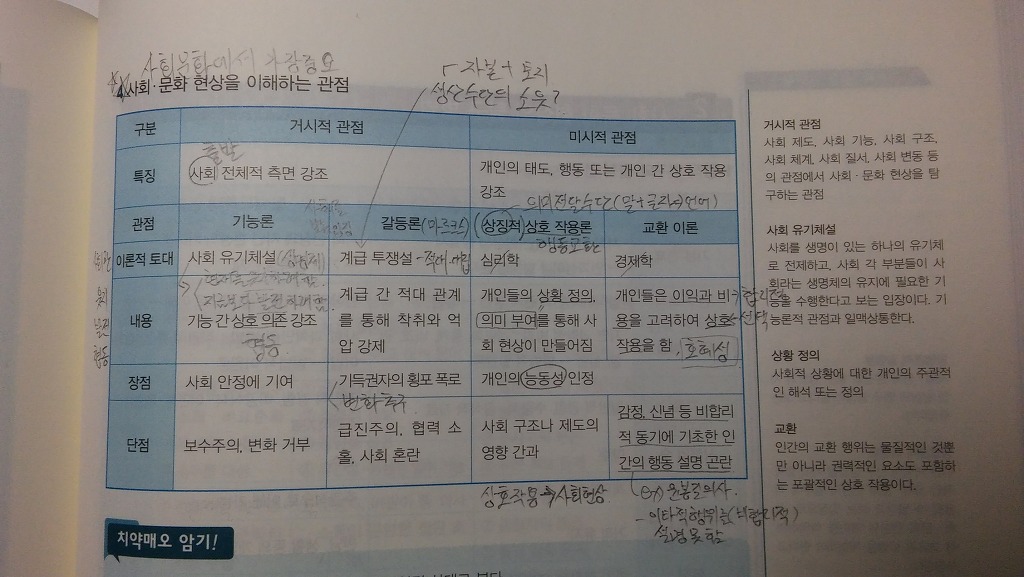 사회문화에서 가장중요
4. 사회·문화 현상을 이해하는 관점
자본+토지
생산수단의 소유?
구분 거시적 관점 미시적 관점
출발
특징 사회 전체적 측면 강조 개인의 태도, 행동 또는 개인 간 상호 작용
강조
의미전달수단(말+글자→언어)
관점 기능론 갈등론(마르크스) (상징적)상호 작용론 교환 이론
행동포함
이론적 토대 사회 유기체설 계급 투쟁설-적대·대립 심리학 경제학
내용
기능 간 상호 의존 강조
협동
계급 간 적대 관계
를 통해 착취와 억
압 강제
개인들의 상황 정의,
의미 부여를 통해 사
회 현상이 만들어짐
개인들은 이익과 비
용을 고려하여 상호
작용을 함, 호혜성
합리적
선택
장점 사회 안정에 기여 기득권자의 횡포 폭로 개인의 능동성 인정
변화 촉구
단점 보수주의, 변화 거부
급진주의, 협력 소
홀, 사회 혼란
사회 구조나 제도의
영향 간과
감정, 신념 등 비합리
적 동기에 기초한 인
간의 행동 설명 곤란
상호작용→사회현상
ex)
-이타적행위는(비합리적)
설명못함
치약매오 암기!
거시적 관점
사회 제도, 사회 기능, 사회 구조,
사회 체계, 사회 질서, 사회 변동 등
의 관점에서 사회·문화 현상을 탐
구하는 관점
사회 유기체설
사회를 생명이 있는 하나의 유기체
로 전제하고, 사회 각 부분들이 사
회라는 생명체의 유지에 필요한 기
능을 수행한다고 보는 입장이다. 기
능론적 관점과 일맥상통한다.
상황 정의
사회적 상황에 대한 개인의 주관적
인 해석 또는 정의
교환
인간의 교환 행위는 물질적인 것뿐
만 아니라 권력적인 요소도 포함하
는 포괄적인 상호 작용이다.